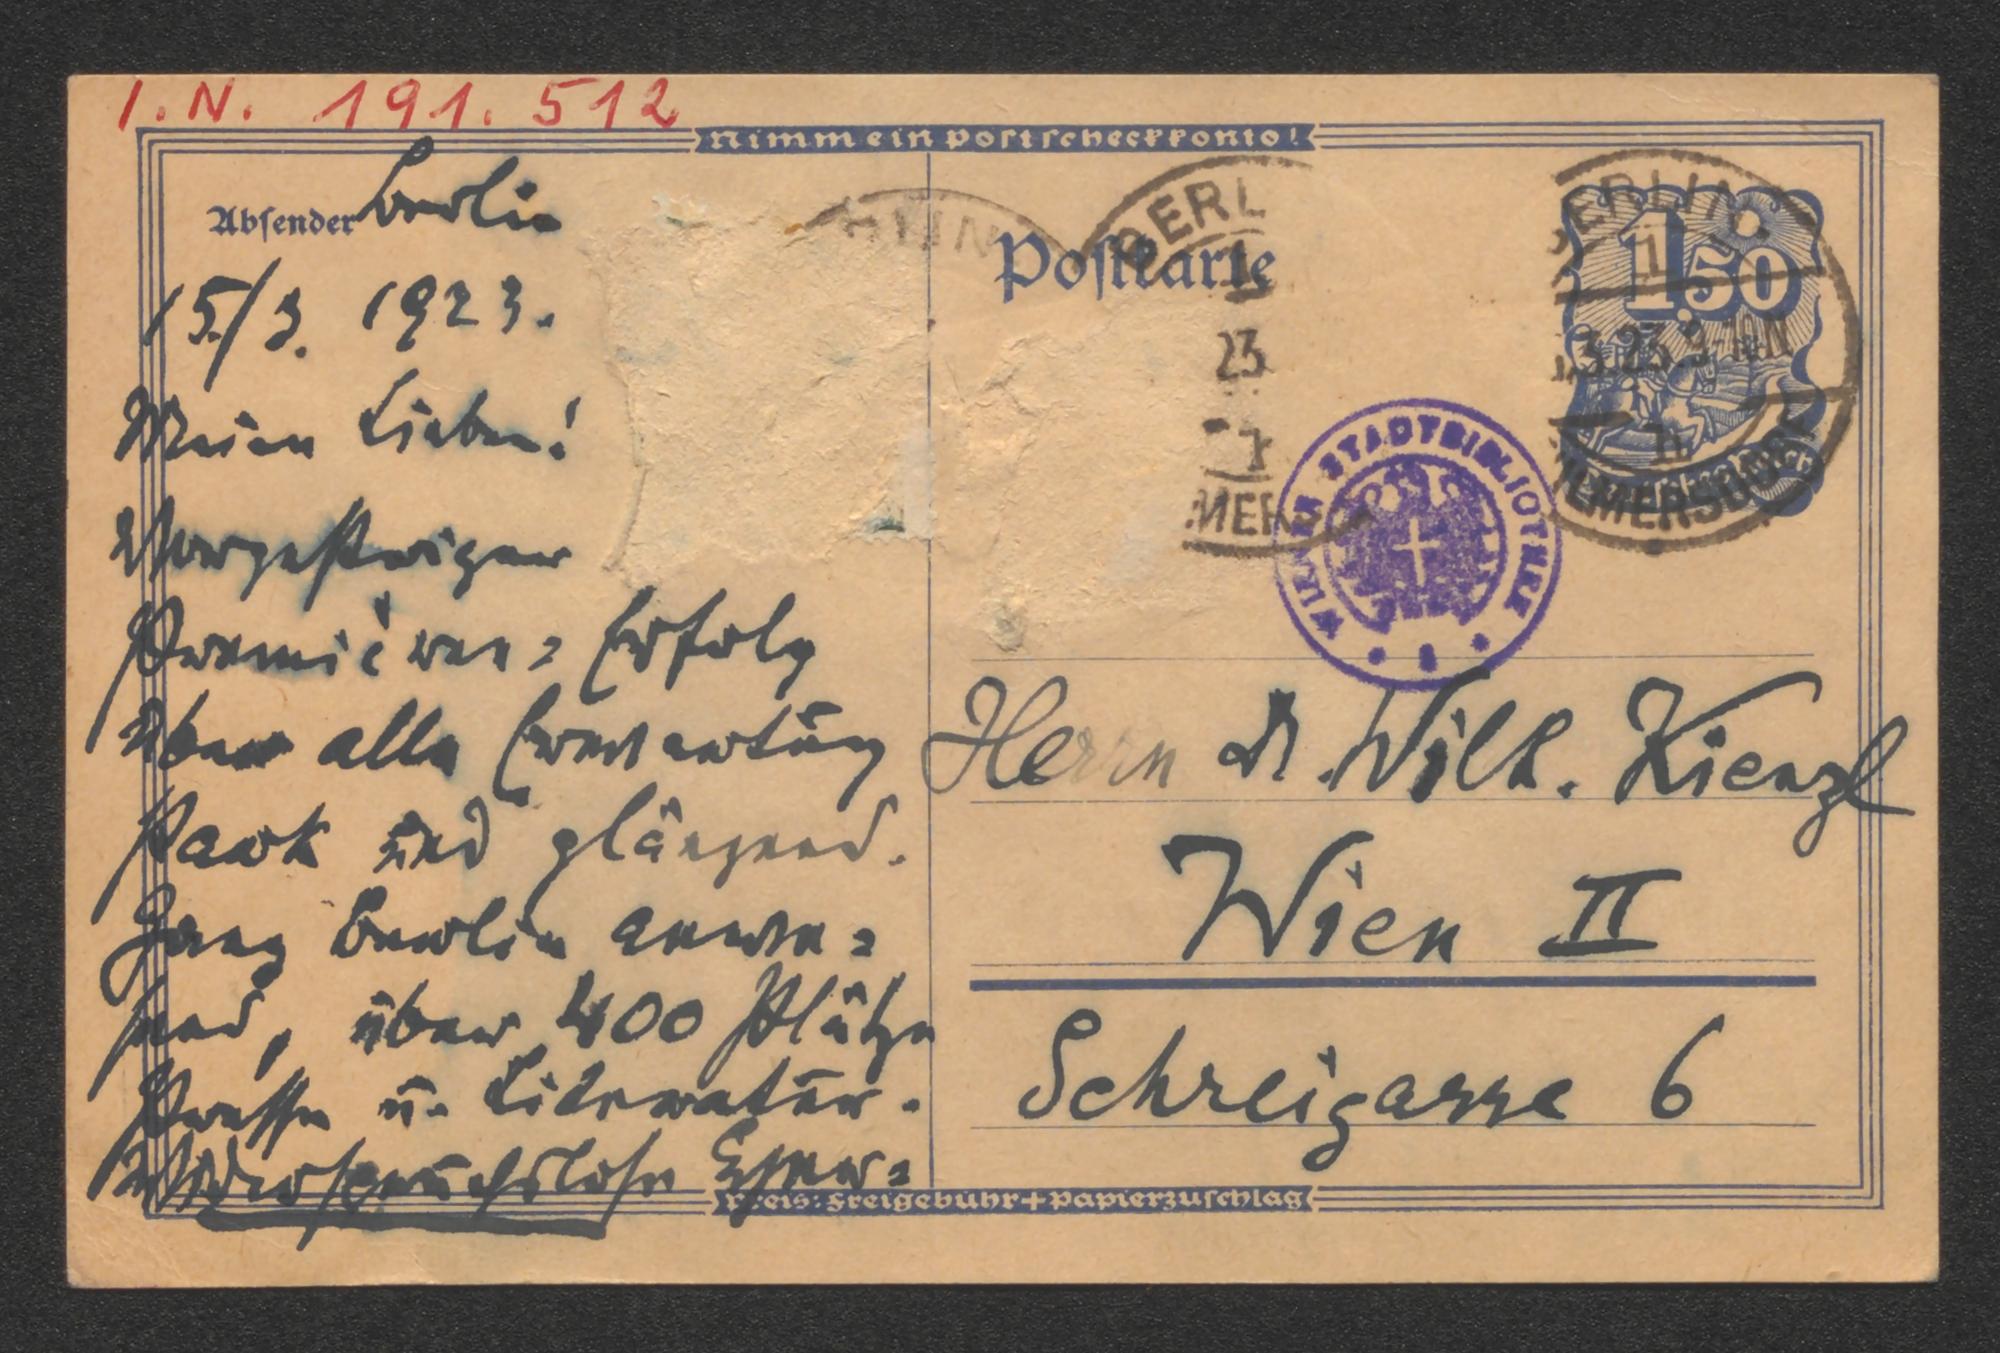 I.N. 191.512
Nimm ein Postscheckkonto!
Absender Berlin
15./3. 1923.
Meine Lieben!
Vorgestriger
Premièren-Erfolg
über alle Erwartung
stark und glänzend.
Ganz Berlin anwe-
send, über 400 Plätze
Presse u. Literatur.
Widerspruchslose
Postkarte
BERLIN
1,50
BERLIN
23
3.23. 9-10 N
WILMERSDORF
WIENER STADTBIBLIOTHEK
Herrn Dr. Wilh. Kienzl
Wien II
Schreigasse 6
Preis: Freigebühr + Papierzuschlag